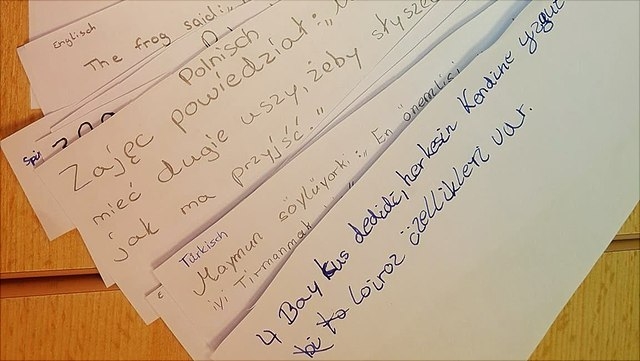 Englisch
The frog said: "
Polnisch
Zajęc powiedział: „
mieć długie uszy, żeby słyszeć
jak ma przyjść."
Türkisch
Maymun söylüyorki: „ En önemlisi
iyi Tirmanmak
4 Baykus dedidi, herkesin Kendine
özellikleri var.